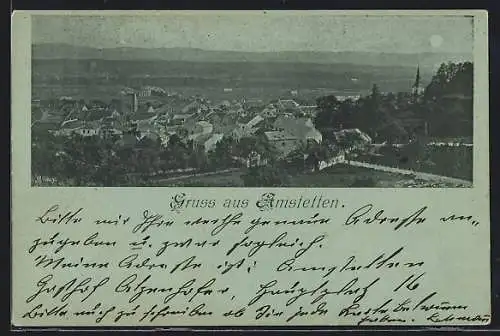 Gruss aus Amstetten.
Bitte mir Ihre werthe genaue Adresse an-
zugeben u. zwar sogleich.
Meine Adresse ist: Amstetten
Gasthof Atzenhofer, Hauptplatz 16
Bitte mich zu schreiben ob Sie jede Karte bekommen
haben.